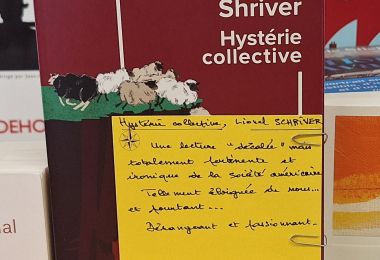 Shriver
Hystérie
collective
DEHO
Hystérie collective, Lionel SCHRIVER
Une lecture "décalée" mais
totalement pertinente et
ironique de la société américaine
Tellement éloignée de nous...
et pourtant...
Dérangeant et passionnant.